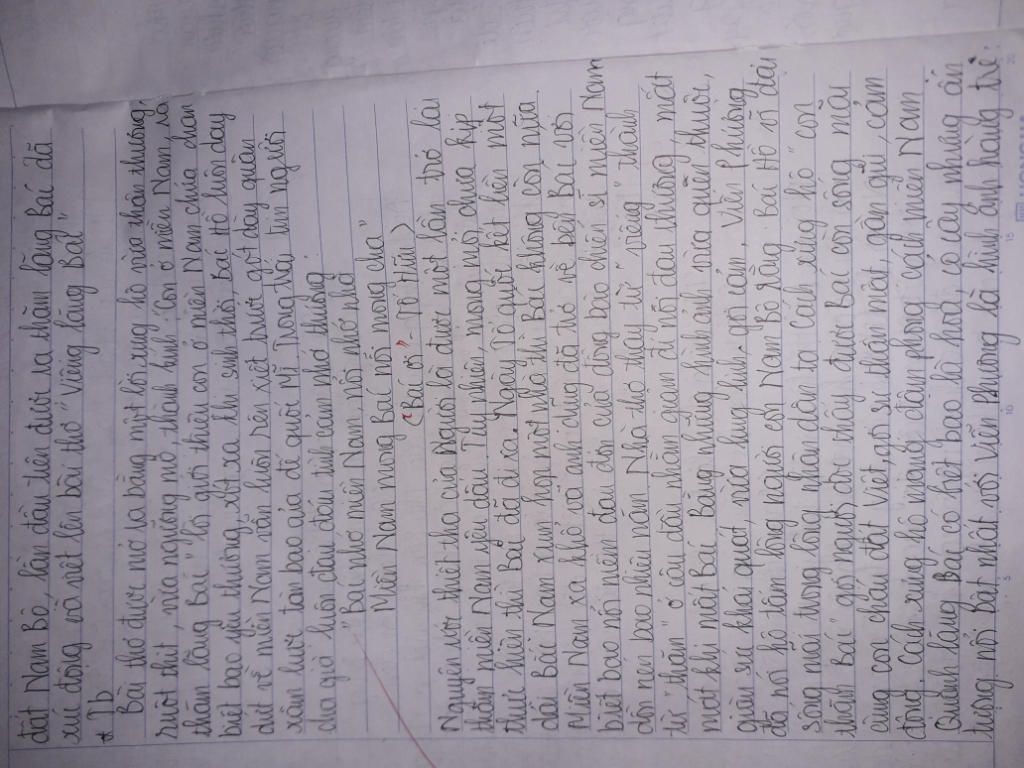 đất Nam Bộ, lần đầu tiên được ra thăm lăng Bác đã
xúc động và viết lên bài thơ "Viếng lăng Bác"
* Tb
Bài thơ được mở ra bằng một lời xưng hô vừa thân thương,
ruột thịt, vừa ngưỡng mộ, thành kính "Con ở miền Nam, ra
thăm lăng Bác" lời giới thiệu con ở miền Nam chứa chan
biết bao yêu thương. xót xa khi sinh thời Bác Hồ luôn day
dứt về miền Nam vẫn luôn rên xiết trước gót dày quân
xâm lược tàn bạo của đế quốc Mĩ. Trong trái tim người
cha già luôn đau đáu tình cảm nhớ thương
"Bác nhớ miền Nam, nỗi nhớ nhà
Miền Nam mong Bác nỗi mong cha"
("Bác ơi" - Tố Hữu)
Nguyện ước thiết tha của Người là được một lần trở lại
thăm miền Nam yêu dấu. Tuy nhiên, mong mỏi chưa kịp
thực hiện thì Bác đã đi ra. Ngày Tổ quốc kết liền một
dải Bắc Nam sum họp một nhà thì Bác không còn nữa.
Miền Nam xa khổ và anh dũng đã trở về bên Bác với
biết bao nỗi niềm đau đớn của đồng bào chiến sĩ miền Nam
dồn nén bao nhiêu năm. Nhà thơ thay từ "viếng" thành
từ "thăm" ở câu đầu nhằm giảm đi nỗi đau thương, mất
mát khi mất Bác. Bằng những hình ảnh vừa quen thuộc,
giàu sức khái quát, vừa hàng hình, gợi cảm, Viễn Phương
đã nói hộ tấm lòng người con Nam Bộ rằng Bác Hồ vĩ đại
sống mãi trong lòng nhân dân ta. Cách xưng hô "con
thăm Bác" gợi người đọc thấy được Bác còn sống mãi
cùng con cháu đất Việt, gợi sự thân mật, gần gũi, cảm
động. Cách xưng hô mang đậm phong cách miền Nam
Quanh lăng Bác có biết bao là loài hoa, có cây nhưng ấn
tượng nổi bật nhất với Viễn Phương là hình ảnh hàng tre: